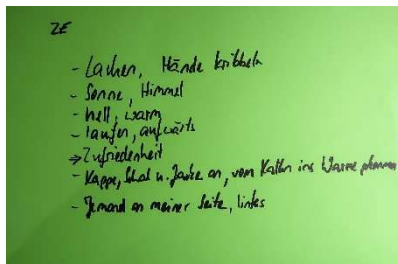 ZE
- Lachen, Hände kribbeln
- Sonne, Himmel
- hell, warm
- laufen, aufwärts
→ Zufriedenheit
- Kappe, Schal u. Jacke an, vom Kalten ins Warme
- Jemand an meiner Seite, links